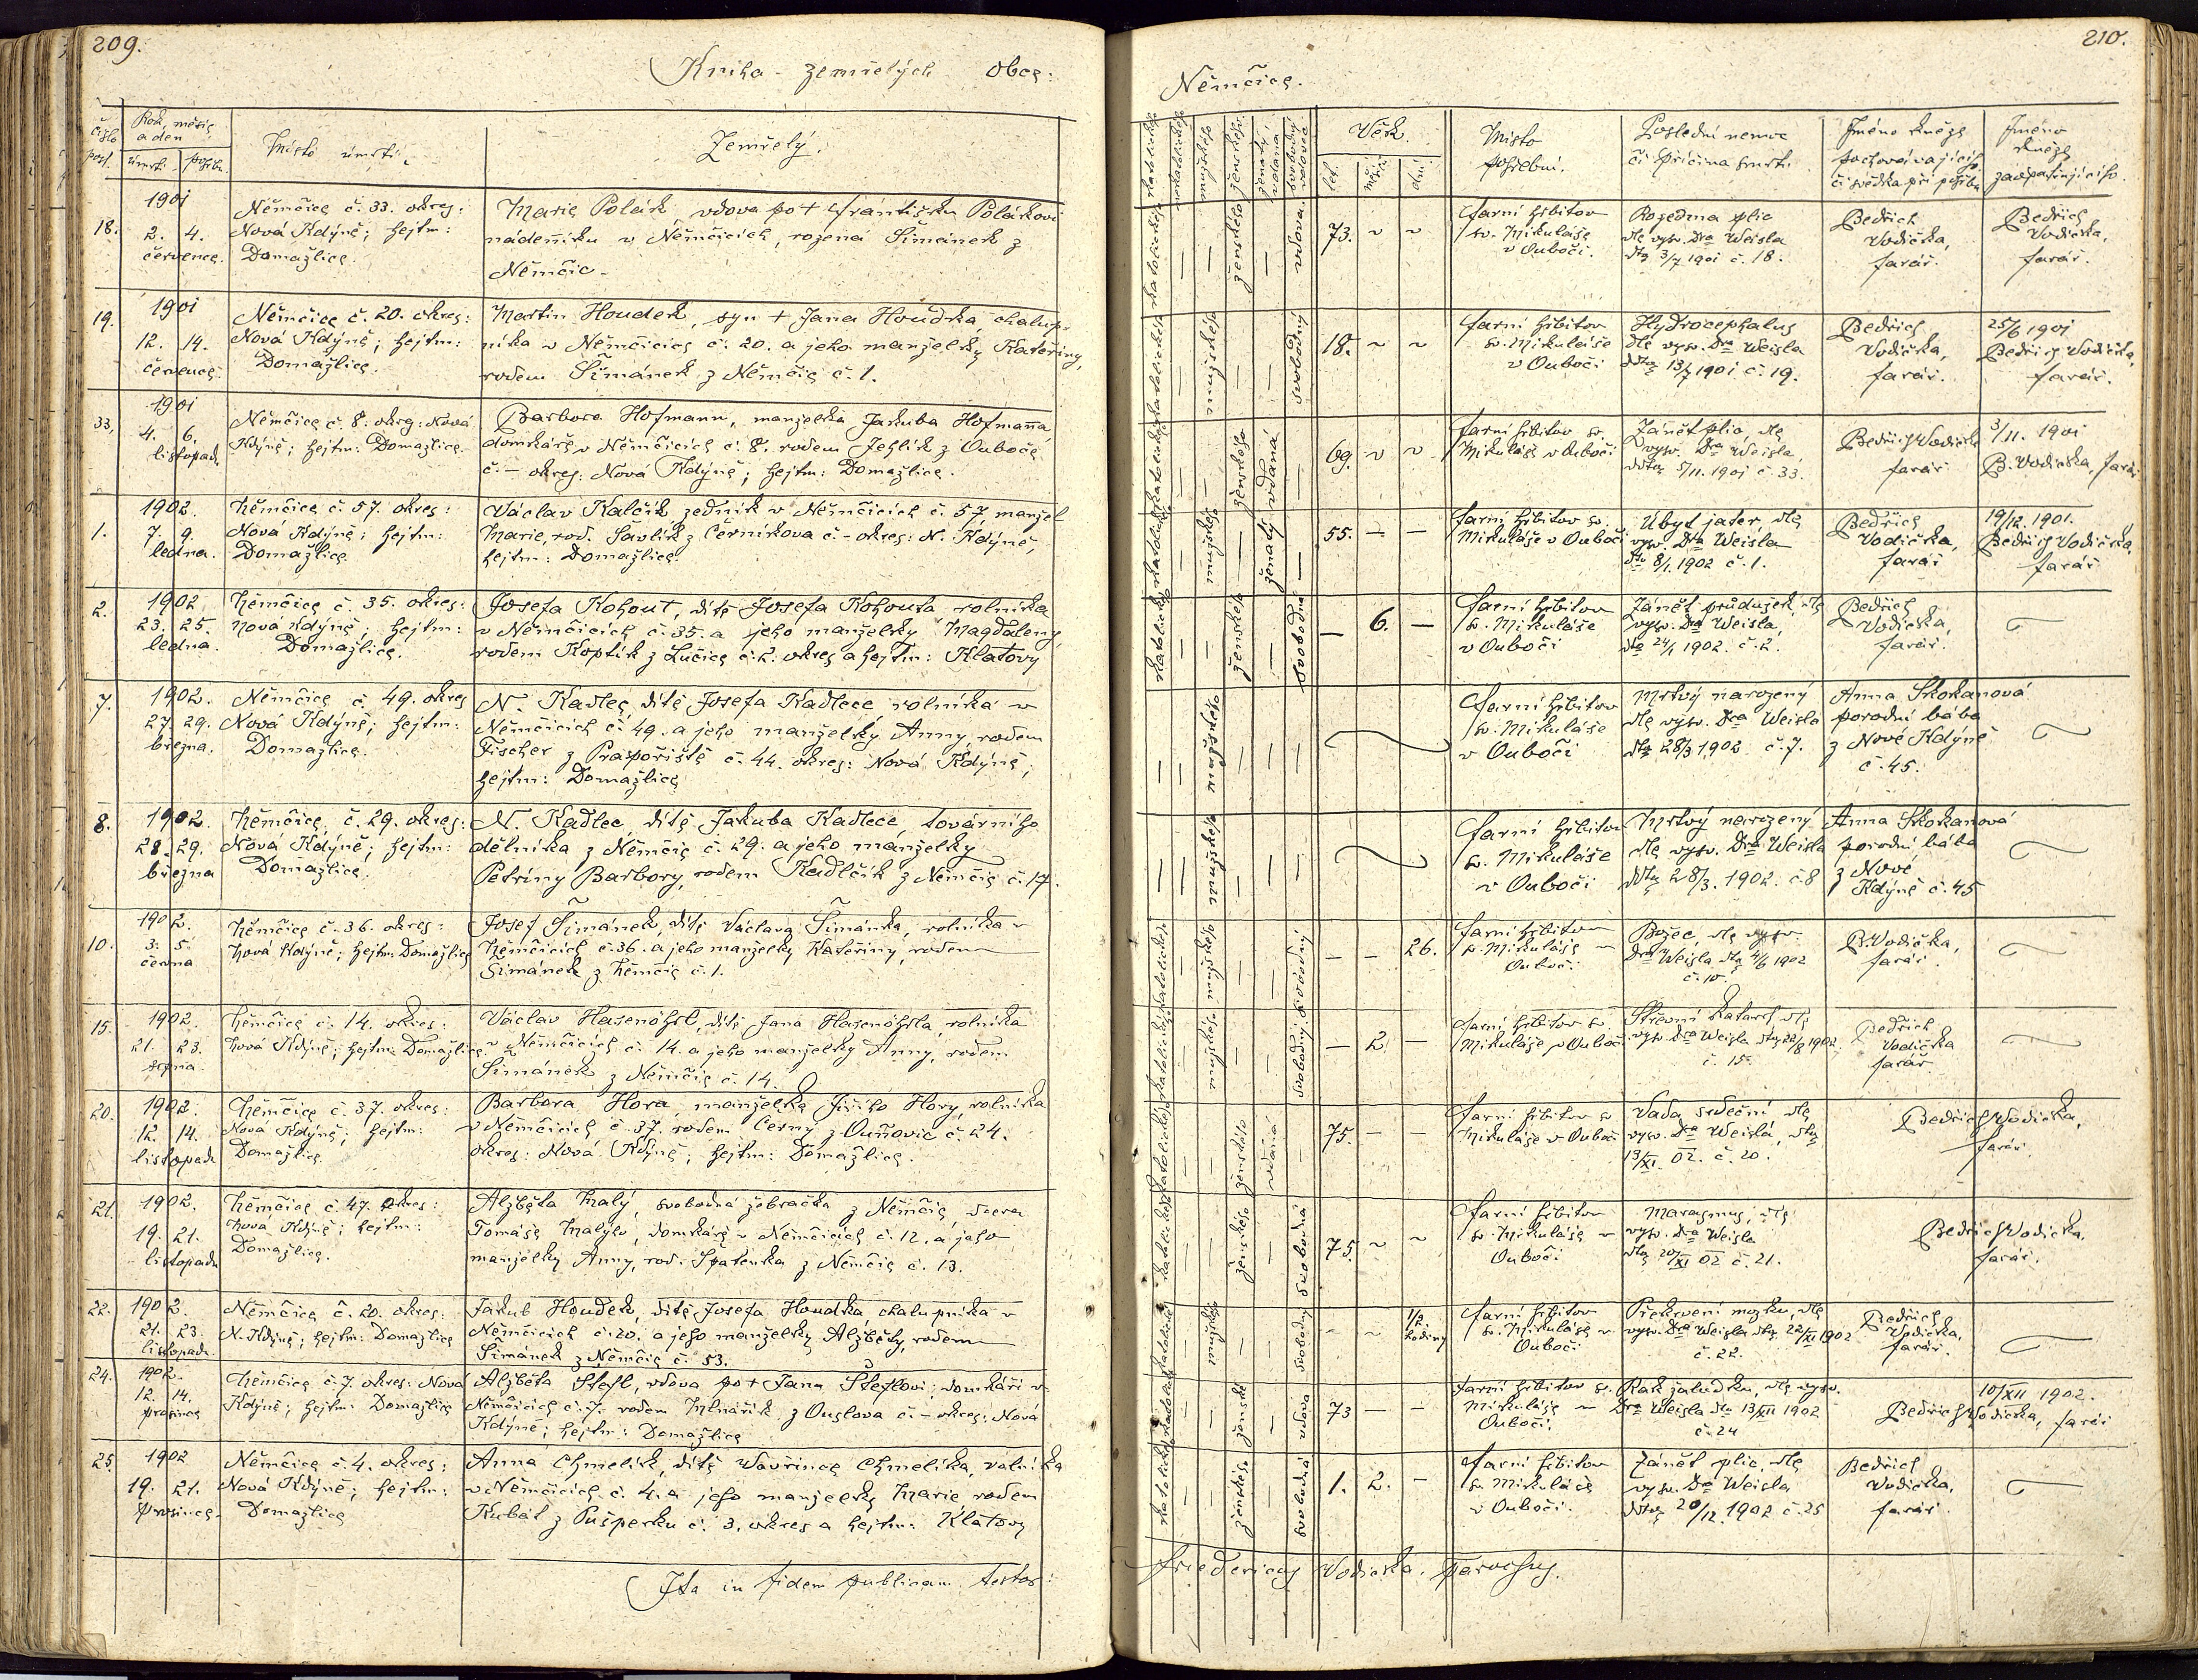 209.
Kniha zemřelých obce:
číslo
post.
Rok, měsíc
a den
úmrtí
pohřbu.
Místo úmrtí.
Zemřelý.
18.
1901
2. 4.
července.
Němčice č. 33. okres:
Nová Kdýně; hejtm:
Domažlice.
Marie Polák, vdova po + Františku Polákovi
nádenníku v Němčicích, rozená Šimánek z
Němčic.
19.
1901
12. 14.
července.
Němčice č. 20. okres:
Nová Kdýně; hejtm:
Domažlice.
Martin Houdek, syn + Jana Houdka, chalup-
níka v Němčicích č. 20. a jeho manželky Kateřiny,
rodem Šimánek z Němčic č. 1.
33.
1901
4. 6.
listopad.
Němčice č. 8. okres: Nová
Kdýně; hejtm: Domažlice.
Barbora Hofmann, manželka Jakuba Hofmanna
domkáře v Němčicích č. 8. rodem Jehlík z Ouboče
č. – okres: Nová Kdýně; hejtm: Domažlice.
1.
1902.
7. 9.
ledna.
Němčice č. 57. okres:
Nová Kdýně; hejtm:
Domažlice.
Václav Kalčík zedník v Němčicích č. 57, manžel
Marie, rod. Šavlík z Černíkova č. – okres: N. Kdýně,
hejtm: Domažlice.
2.
1902
23. 25.
ledna.
Němčice č. 35. okres:
Nová Kdýně; hejtm:
Domažlice.
Josefa Kohout, dítě Josefa Kohouta, rolníka
v Němčicích č. 35. a jeho manželky Magdaleny,
rodem Koptík z Lučice č. 2. okres a hejtm: Klatovy
7.
1902.
27. 29.
března.
Němčice č. 49. okres
Nová Kdýně; hejtm:
Domažlice.
N. Kadlec, dítě Josefa Kadlece rolníka v
Němčicích č. 49. a jeho manželky Anny, rodem
Fischer z Prapořiště č. 44. okres: Nová Kdýně;
hejtm: Domažlice
8.
1902.
28. 29.
března
Němčice, č. 29. okres:
Nová Kdýně; hejtm:
Domažlice.
N. Kadlec, dítě Jakuba Kadlece, továrního
dělníka z Němčic č. 29. a jeho manželky
Petriny Barbory, rodem Kadlčík z Němčic č. 17.
10.
1902.
3. 5.
června
Němčice č. 36. okres:
Nová Kdýně; hejtm: Domažlice
Josef Šimánek, dítě Václava Šimánka, rolníka v
Němčicích č. 36. a jeho manželky Kateřiny, rodem
Šimánek z Němčic č. 1.
15.
1902.
21. 23.
srpna.
Němčice č. 14. okres:
Nová Kdýně; hejtm: Domažlice.
Václav Hasenöhrl, dítě Jana Hasenöhrla, rolníka
v Němčicích č. 14. a jeho manželky Anny, rodem
Šimánek z Němčic č. 14.
20.
1902.
12. 14.
listopadu
Němčice č. 37. okres:
Nová Kdýně; hejtm:
Domažlice.
Barbora Hora, manželka Jiřího Hory, rolníka
v Němčicích č. 37. rodem Černý z Ouňovic č. 24.
okres: Nová Kdýně; hejtm: Domažlice.
21.
1902.
19. 21.
listopadu
Němčice č. 47. okres:
Nová Kdýně; hejtm:
Domažlice.
Alžběta Malý, svobodná žebračka z Němčic, dcera
Tomáše Malýho, domkáře v Němčicích č. 12. a jeho
manželky Anny, rod. Špatenka z Němčic č. 13.
22.
1902.
21. 23.
listopadu.
Němčice č. 20. okres:
N. Kdýně; hejtm: Domažlice
Jakub Houdek, dítě Josefa Houdka chalupníka v
Němčicích č. 20. a jeho manželky Alžběty, rodem
Šimánek z Němčic č. 53.
24.
1902.
12. 14.
prosince
Němčice č. 7. okres: Nová
Kdýně; hejtm: Domažlice
Alžběta Štefl, vdova po + Janu Šteflovi; domkáři v
Němčicích č. 7. rodem Mlnářík z Ouslova č. – okres: Nová
Kdýně; hejtm: Domažlice
25.
1902
19. 21.
prosince.
Němčice č. 4. okres:
Nová Kdýně; hejtm:
Domažlice
Anna Chmelík, dítě Vavřince Chmelíka, rolníka
v Němčicích č. 4. a jeho manželky Marie, rodem
Kubát z Pušperku č. 3. okres a hejtm: Klatovy
Ita in fidem publicam testor:
210.
Němčice.
Věk.
let.
měsíců
dní
Místo
pohřební.
Poslední nemoc
či příčina smrti.
Jméno kněze
pochovávajícího
či svědka při pohřbu
Jméno
kněze
zaopatřujícího.
katolického
ženského
vdova
73. ~ ~
farní hřbitov
sv. Mikuláše
v Ouboči.
Rozedma plic
dle vysv. Dra Weisla
dto 3/7 1901 č. 18.
Bedřich
Vodička,
farář.
Bedřich
Vodička,
farář.
katolického
mužského
svobodný
18. ~ ~
farní hřbitov
sv. Mikuláše
v Ouboči
Hydrocephalus
dle vysv. Dra Weisla
ddto 13/7 1901 č. 19.
Bedřich
Vodička,
farář.
25/6 1901
Bedřich Vodička,
farář.
katolického
ženského
vdaná
69. ~ ~
farní hřbitov sv.
Mikuláše v Ouboči
Zánět plic, dle
vysv. Dra Weisla,
ddto 5/11. 1901 č. 33.
Bedřich Vodička
farář
3/11. 1901
B. Vodička, farář
katolického
mužského
ženatý
55. – –
farní hřbitov sv.
Mikuláše v Ouboči
Úbyt jater, dle
vysv. Dra Weisla
dto 8/1. 1902 č. 1.
Bedřich
Vodička,
farář
19/12. 1901.
Bedřich Vodička,
farář
katolického
ženského
svobodná
– 6. –
farní hřbitov
sv. Mikuláše
v Ouboči
Zánět průdušek, dle
vysv. Dra Weisla,
dto 24/1 1902. č. 2.
Bedřich
Vodička,
farář.
mužského
farní hřbitov
sv. Mikuláše
v Ouboči
Mrtvý narozený
dle vysv. Dra Weisla
dto 28/3 1902 č. 7.
Anna Skokanová
porodní bába
z Nové Kdýně
č. 45.
mužského
farní hřbitov
sv. Mikuláše
v Ouboči
Mrtvý narozený
dle vysv. Dra Weisla
ddto 28/3. 1902. č. 8
Anna Skokanová
porodní bába
z Nové
Kdýně č. 45
katolického
mužského
svobodný
– – 26.
farní hřbitov
sv. Mikuláše v
Ouboči
Božec, dle vysv.
Dra Weisla dto 4/6 1902
č. 10.
B. Vodička,
farář.
katolického
mužského
svobodný
– 2. –
farní hřbitov sv.
Mikuláše v Ouboči
Střevní katarrh dle
vysv. Dra Weisla dto 22/8 1902
č. 15.
Bedřich
Vodička
farář
katolického
ženského
vdaná
75. – –
farní hřbitov sv
Mikuláše v Ouboči
Vada srdeční dle
vysv. Dra Weisla, dto
13/XI. 02. č. 20.
Bedřich Vodička,
farář.
katolického
ženského
svobodná
75. ~ ~
farní hřbitov
sv. Mikuláše v
Ouboči
Marasmus, dle
vysv. Dra Weisla
dto 20/XI 02 č. 21.
Bedřich Vodička,
farář.
katolického
mužského
svobodný
– ~ 1/2 hodiny
farní hřbitov
sv. Mikuláše v
Ouboči
Překrvení mozku, dle
vysv. Dra Weisla dto. 22/XI 1902
č. 22.
Bedřich
Vodička,
farář.
katolického
ženské
vdova
73 – –
farní hřbitov sv.
Mikuláše v
Ouboči.
Rak žaludku, dle vysv.
Dra Weisla dto 13/XII 1902
č. 24
10/XII 1902.
Bedřich Vodička, farář
katolického
ženského
svobodná
1. 2. –
farní hřbitov
sv. Mikuláše
v Ouboči.
Zánět plic, dle
vysv. Dra Weisla
ddto 20/12. 1902 č. 25
Bedřich
Vodička,
farář.
Friedericus Vodicska, parochus.